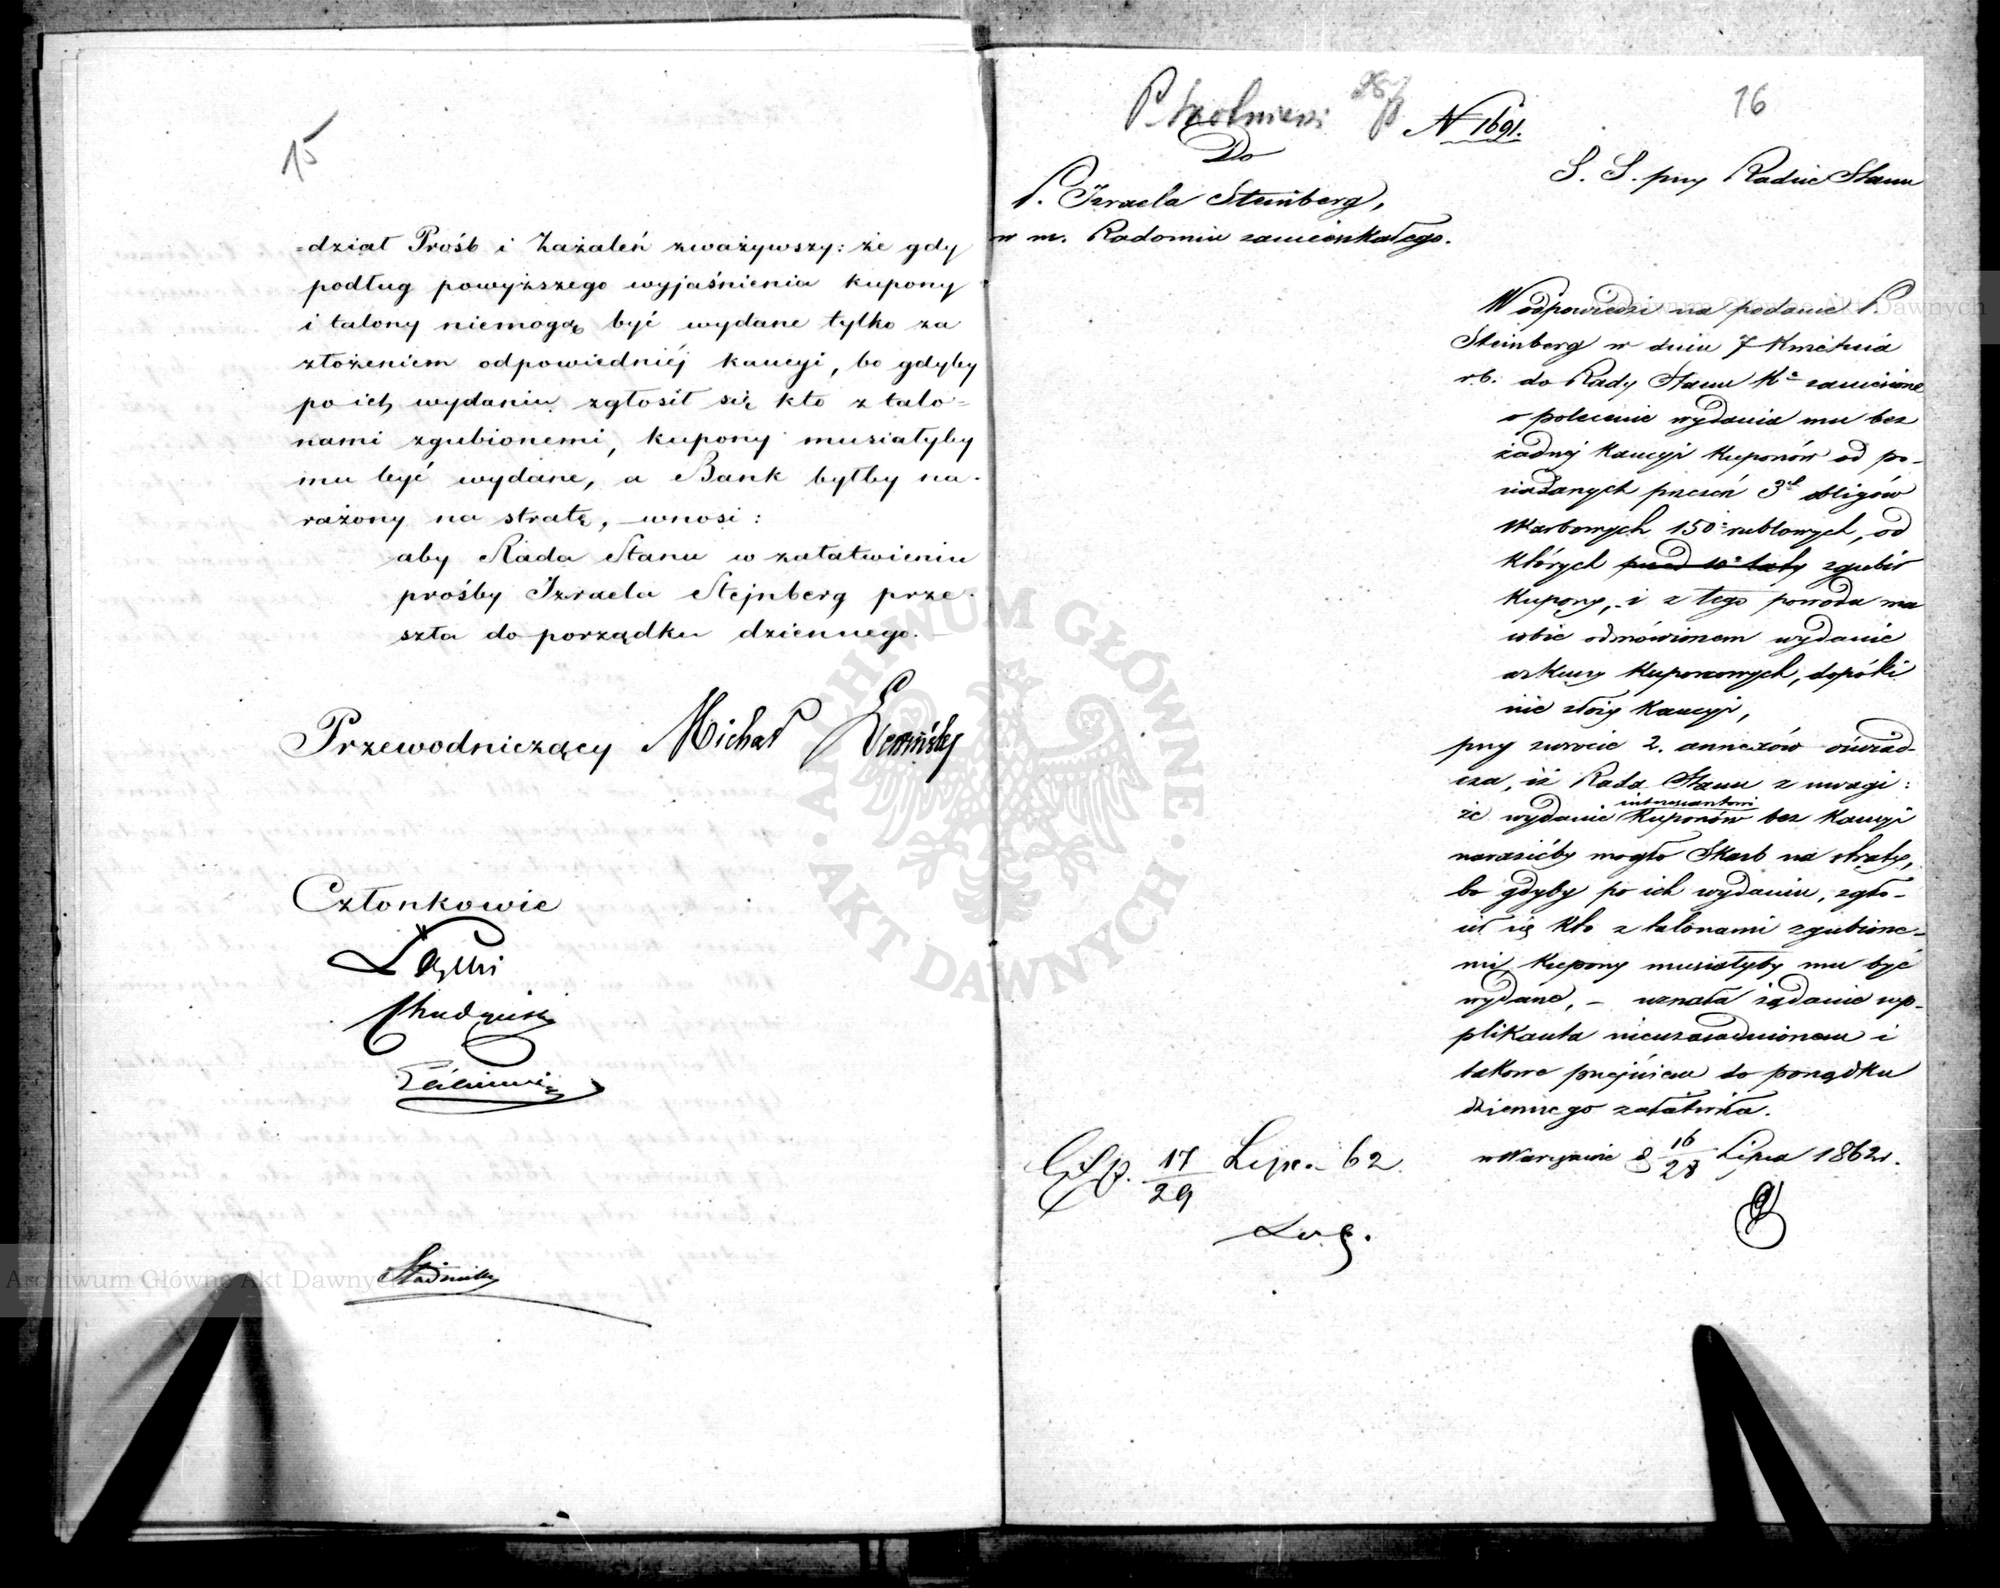 15
=dział Prośb i Zażaleń zważywszy: że gdy
podług powyższego wyjaśnienia kupony
i talony niemogą być wydane tylko za
złożeniem odpowiedniéj kaucyi, bo gdyby
po ich wydaniu zgłosił się kto z talo=
nami zgubionemi, kupony musiałyby
mu być wydane, a Bank byłby na-
rażony na stratę, – wnosi:
aby Rada Stanu w załatwieniu
prośby Izraela Stejnberg prze-
szła do porządku dziennego. –
Przewodniczący Michał
Członkowie
16
N 1691.
Do
P. Izraela Steinberg,
w m. Radomiu zamieszkałego.
S. S. przy Radzie Stanu
W odpowiedzi na podanie P.
Steinberg w dniu 7 Kwietnia
r. b. do Rady Stanu Kr zaniesione
o polecenie wydania mu bez
żadnej Kaucyi Kuponów od po-
siadanych przezeń 3ch obligów
skarbowych 150 rublowych, od
których zgubił
Kupony, i z tego powodu ma
sobie odmówionem wydanie
arkuszy Kuponowych, dopóki
nie złoży Kaucyi,
przy zwrocie 2. annexów oświad-
cza, iż Rada Stanu z uwagi:
że wydanie interesantowi Kuponów bez Kaucyi
narazićby mogło Skarb na stratę,
bo gdyby po ich wydaniu, zgło-
sił się kto z talonami zgubione-
mi, Kupony musiałyby mu być
wydane, – uznała żądanie sup-
plikanta nieuzasadnionem i
takowe przejściem do porządku
dziennego załatwiła.
w Warszawie d 16/28 Lipca 1862 r.
17/29 Lipca 62.
Archiwum Główne Akt Dawnych
Archiwum Główne Akt Dawnych
ARCHIWUM GŁÓWNE · AKT DAWNYCH ·